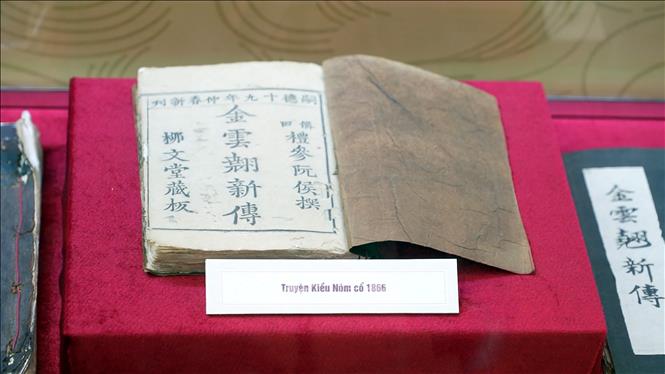 嗣德十九年仲春新刊
僊田
禮參阮侯撰
金雲翹新傳
柳文堂藏板
Truyện Kiều Nôm cổ 1866
金雲翹新傳